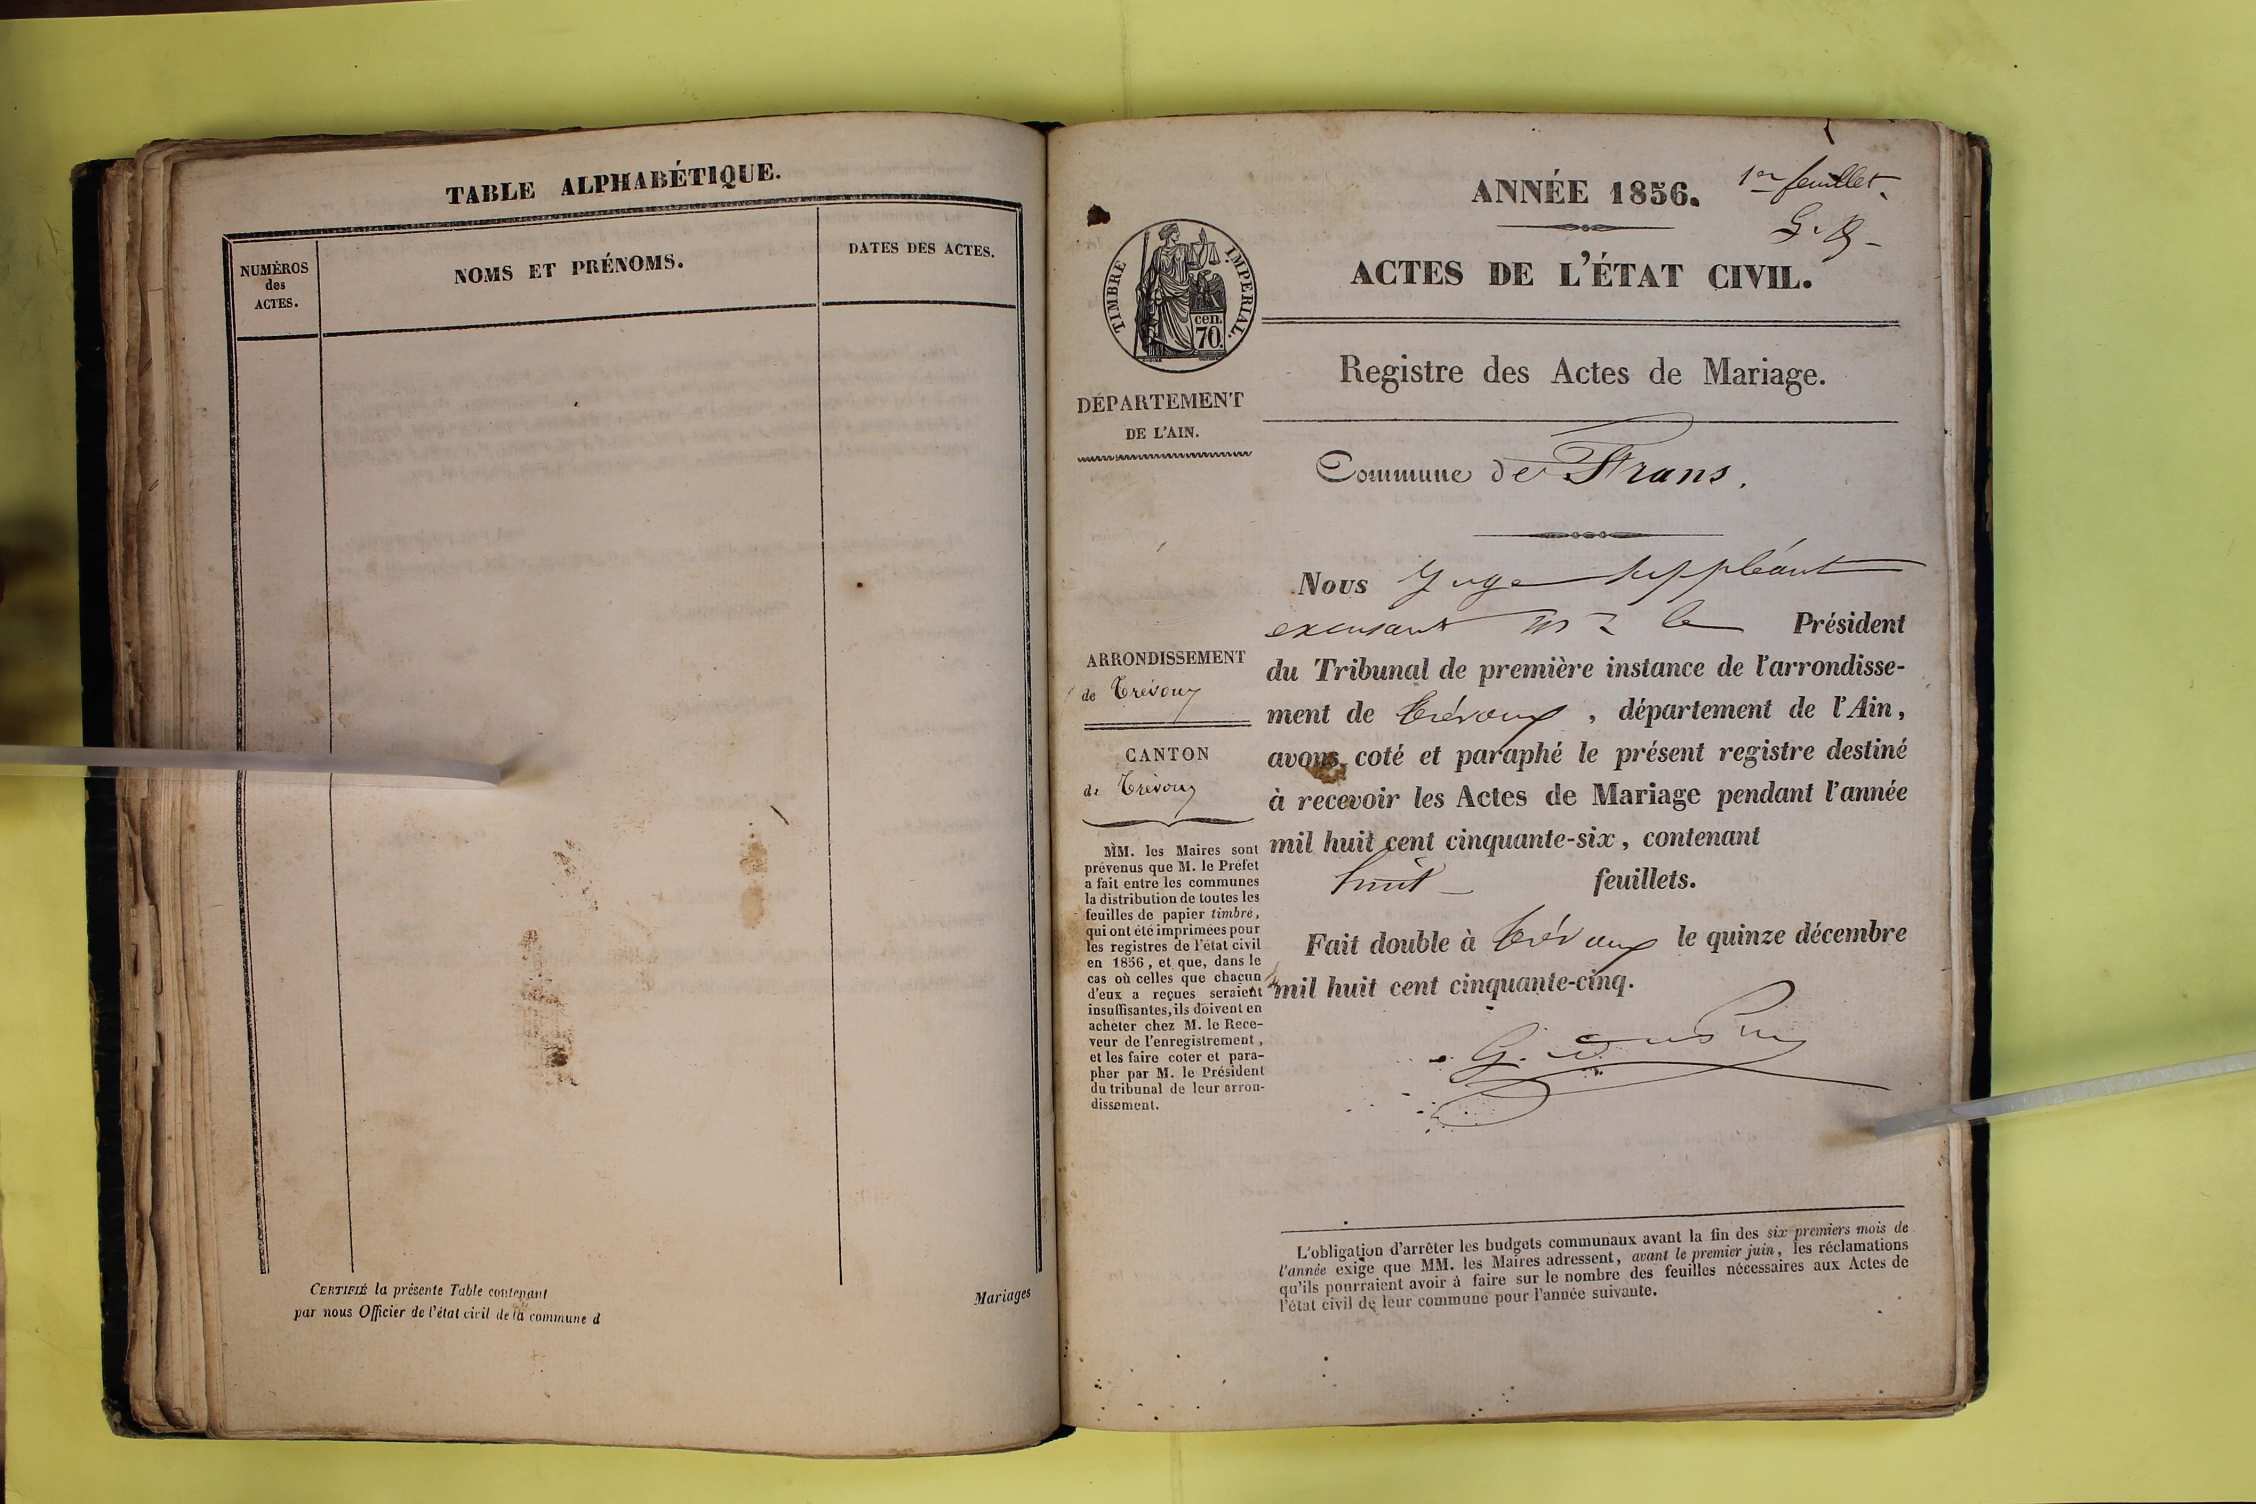 TABLE ALPHABÉTIQUE.
NUMÉROS
des
ACTES.
NOMS ET PRÉNOMS.
DATES DES ACTES.
CERTIFIÉ la présente Table contenant
Mariages
par nous Officier de l'état civil de la commune d
ANNÉE 1856.
1er feuillet.
ACTES DE L'ÉTAT CIVIL.
TIMBRE IMPERIAL.
cen.
70.
Registre des Actes de Mariage.
DÉPARTEMENT
DE L'AIN.
Commune de Frans.
Nous Juge suppléant
excusant Mr le Président
du Tribunal de première instance de l'arrondisse-
ment de Trévoux, département de l'Ain,
avons coté et paraphé le présent registre destiné
à recevoir les Actes de Mariage pendant l'année
mil huit cent cinquante-six, contenant
huit feuillets.
Fait double à Trévoux le quinze décembre
mil huit cent cinquante-cinq.
ARRONDISSEMENT
de Trévoux
CANTON
de Trévoux
MM. les Maires sont
prévenus que M. le Préfet
a fait entre les communes
la distribution de toutes les
feuilles de papier timbré,
qui ont été imprimées pour
les registres de l'état civil
en 1856, et que, dans le
cas où celles que chacun
d'eux a reçues seraient
insuffisantes, ils doivent en
acheter chez M. le Rece-
veur de l'enregistrement,
et les faire coter et para-
pher par M. le Président
du tribunal de leur arron-
dissement.
L'obligation d'arrêter les budgets communaux avant la fin des six premiers mois de
l'année exige que MM. les Maires adressent, avant le premier juin, les réclamations
qu'ils pourraient avoir à faire sur le nombre des feuilles nécessaires aux Actes de
l'état civil de leur commune pour l'année suivante.